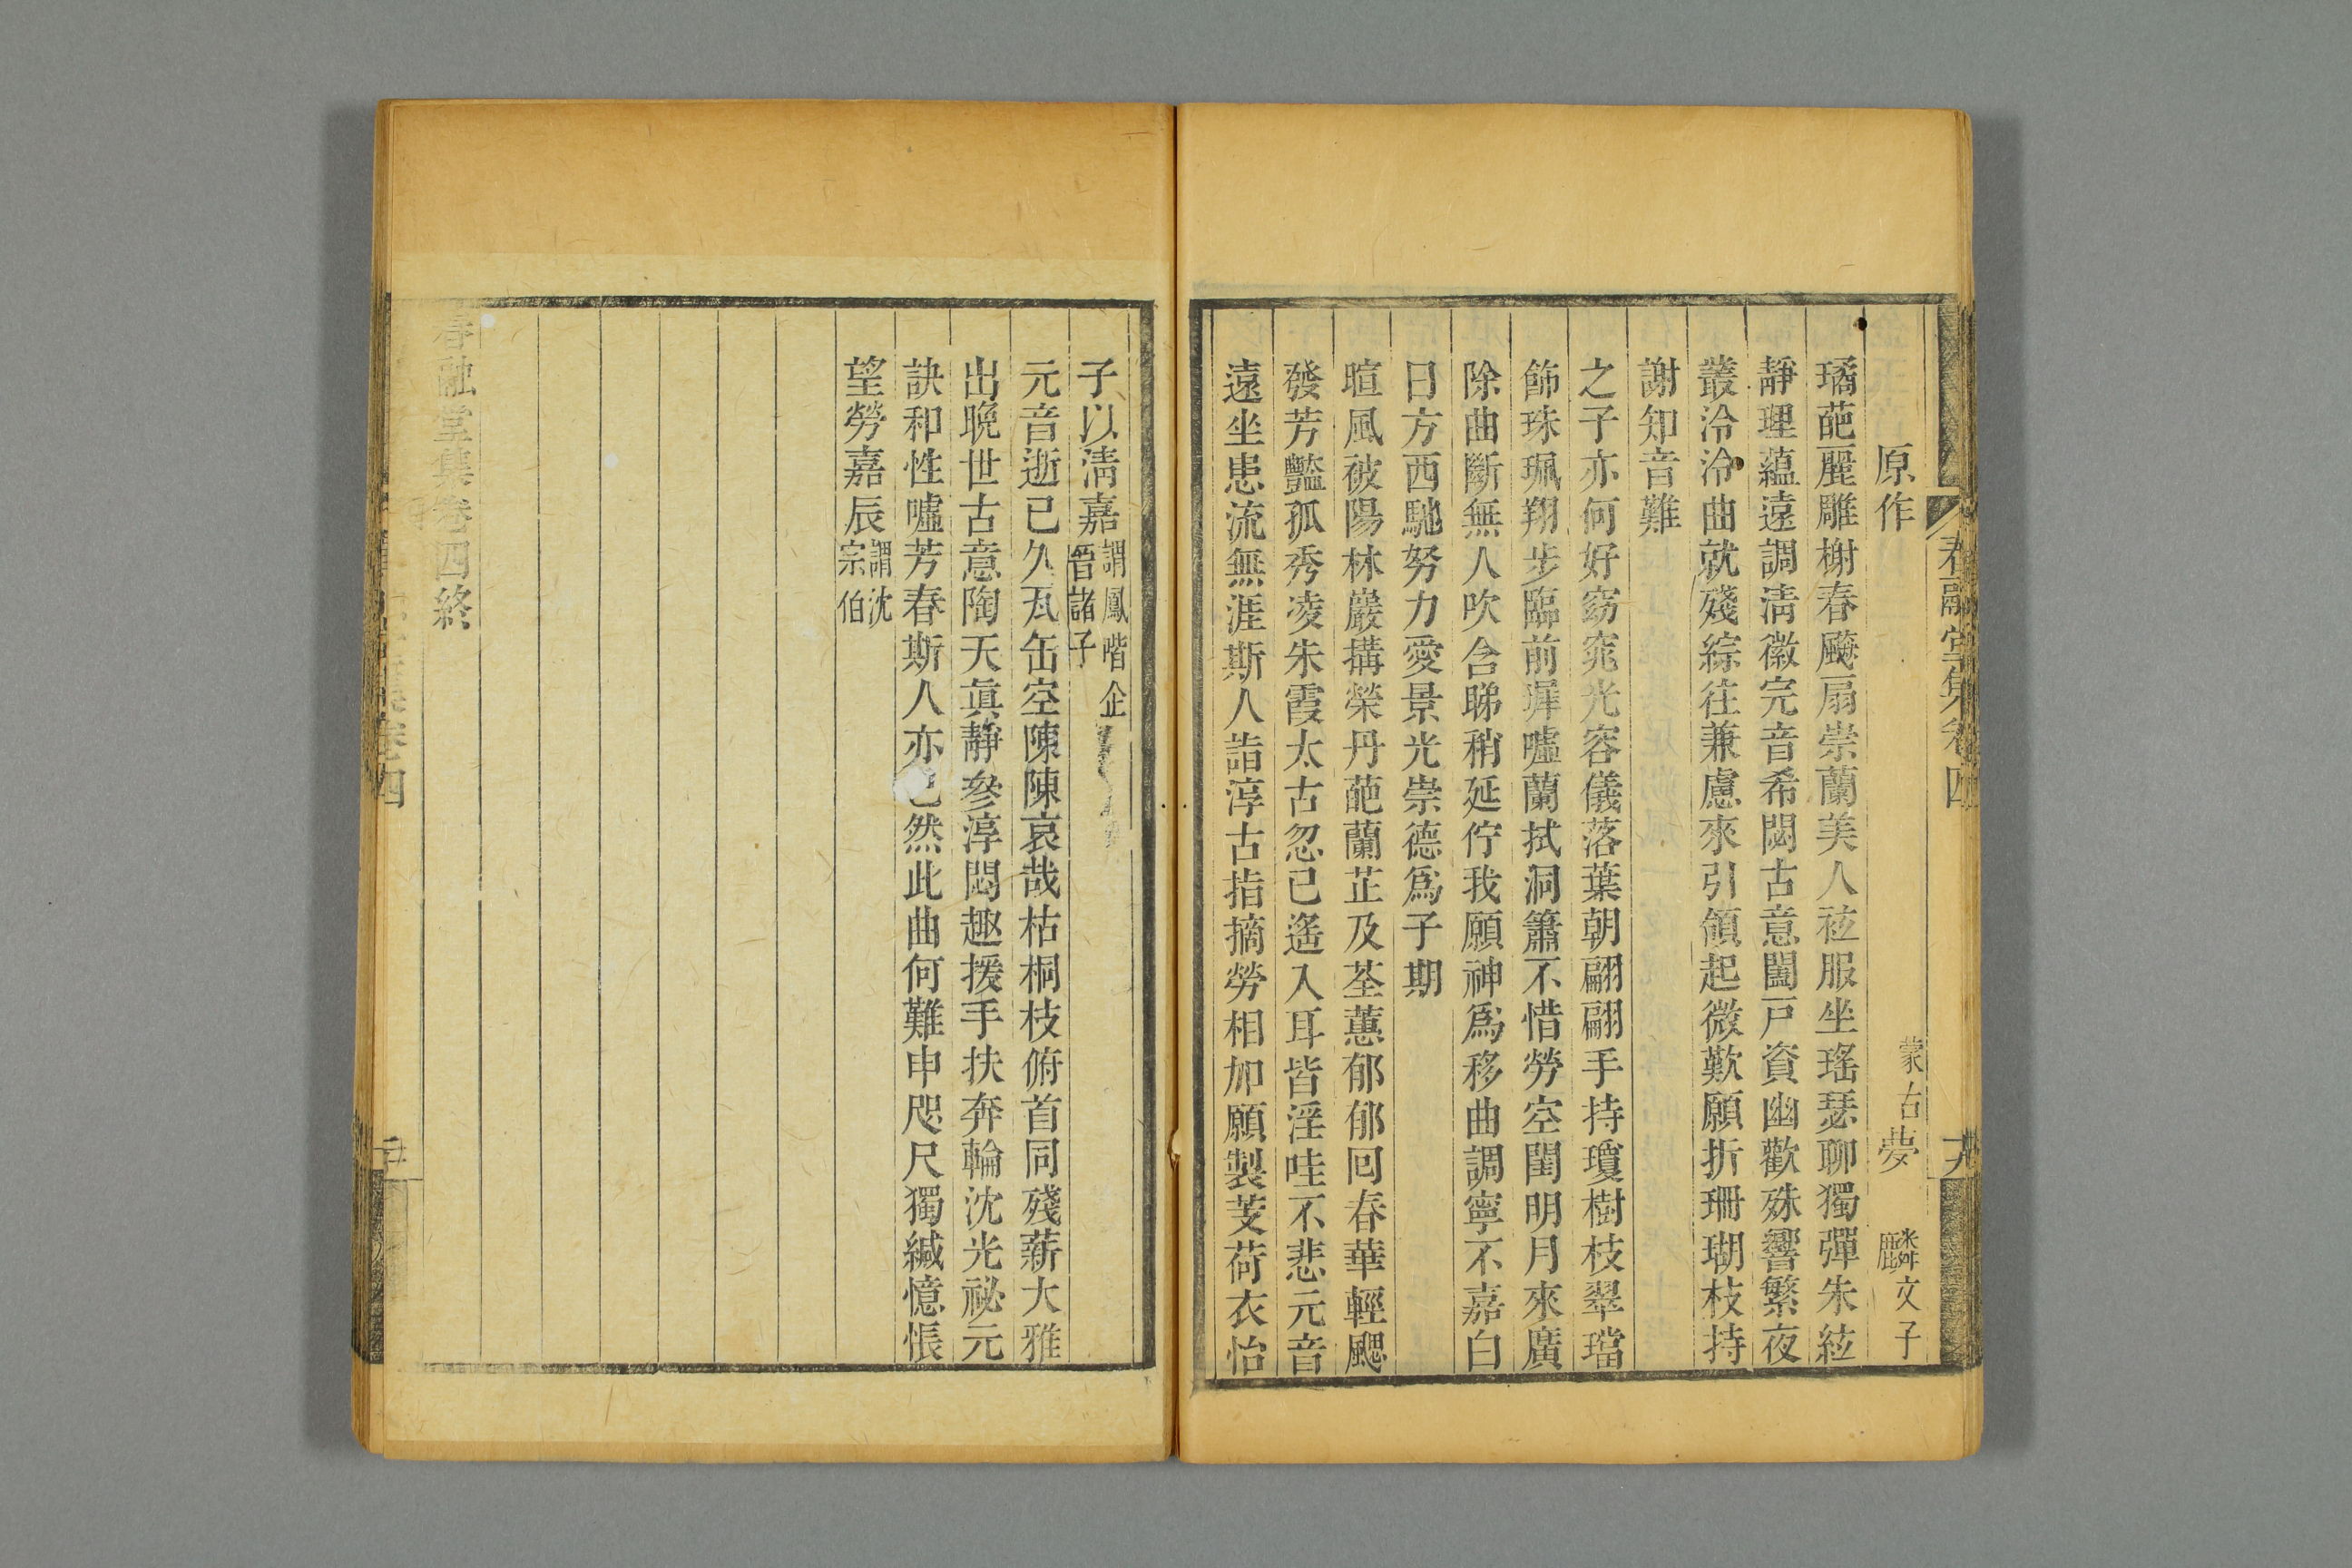 春融堂集卷四
原作
蒙古夢麟文子
璚葩麗雕榭春颸扇崇蘭美人袨服坐瑤瑟聊獨彈朱絃
靜理蘊遠調淸徽完音希閟古意闔戸資幽歡殊響繁夜
叢泠泠曲就殘綜往兼慮來引領起微歎願折珊瑚枝持
謝知音難
之子亦何好窈窕光容儀落葉朝翩翩手持瓊樹枝翠璫
飾珠珮翔步臨前墀噓蘭拭洞簫不惜勞空閨明月來廣
除曲斷無人吹含睇稍延佇我願神爲移曲調寧不嘉白
日方西馳努力愛景光崇德爲子期
暄風被陽林巖搆榮丹葩蘭芷及荃蕙郁郁回春華輕颸
發芳豔孤秀凌朱霞太古忽已遙入耳皆淫哇不悲元音
遠坐患流無涯斯人詣淳古指摘勞相加願製芰荷衣怡
子以淸嘉謂鳳喈企
晉諸子
元音逝已久瓦缶空陳陳哀哉枯桐枝俯首同殘薪大雅
出晩世古意陶天眞靜參淳悶趣援手扶奔輪沈光祕元
訣和性噓芳春斯人亦已然此曲何難申咫尺獨緘憶悵
望勞嘉辰謂沈
宗伯
春融堂集卷四終
卷四